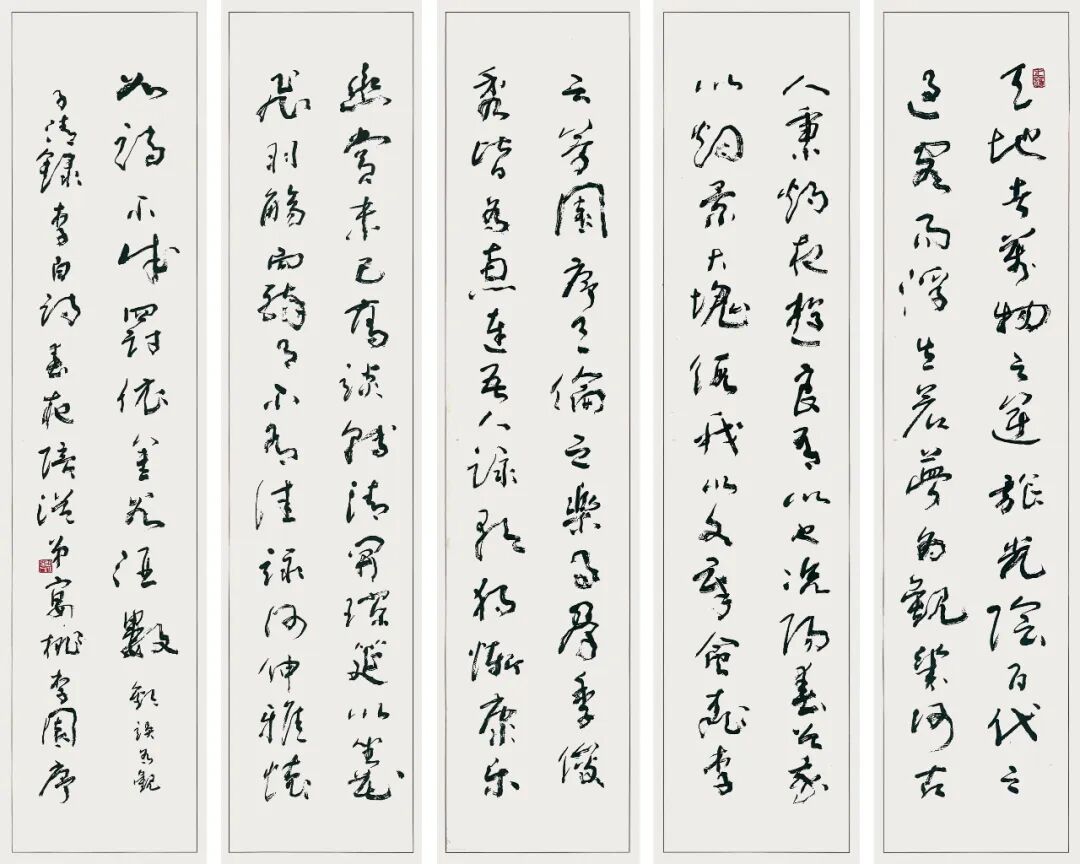 天地者萬物之逆旅光陰百代之
過客而浮生若夢為觀幾何古
人秉燭夜遊良有以也況陽春召我
以煙景大塊假我以文章會桃李
之芳園序天倫之樂事群季俊
秀皆為惠連吾人詠歌獨慚康樂
幽賞未已高談轉清開瓊筵以坐花
飛羽觴而醉月不有佳詠何伸雅懷
如詩不成罰依金谷酒數 歡誤為觀
子清錄李白詩春夜陪從弟宴桃李園序